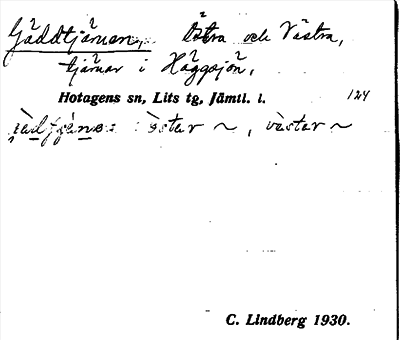 Gäddtjärnen, Östra och Västra,
tjärnar i Häggsjön,
Hotagens sn, Lits tg, Jämtl. l. 124
: östar ~, västar ~
C. Lindberg 1930.